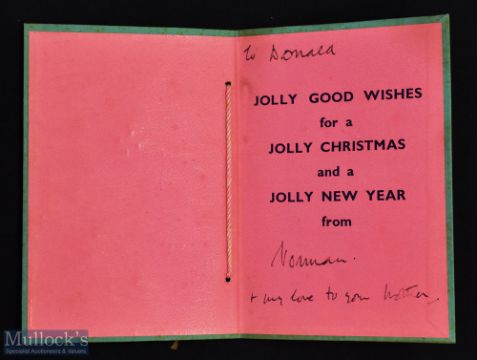 To Donald
JOLLY GOOD WISHES
for a
JOLLY CHRISTMAS
and a
JOLLY NEW YEAR
from
Norman.
+ my love to your Mother.
Mullock's
Specialist Auctioneers & Valuers